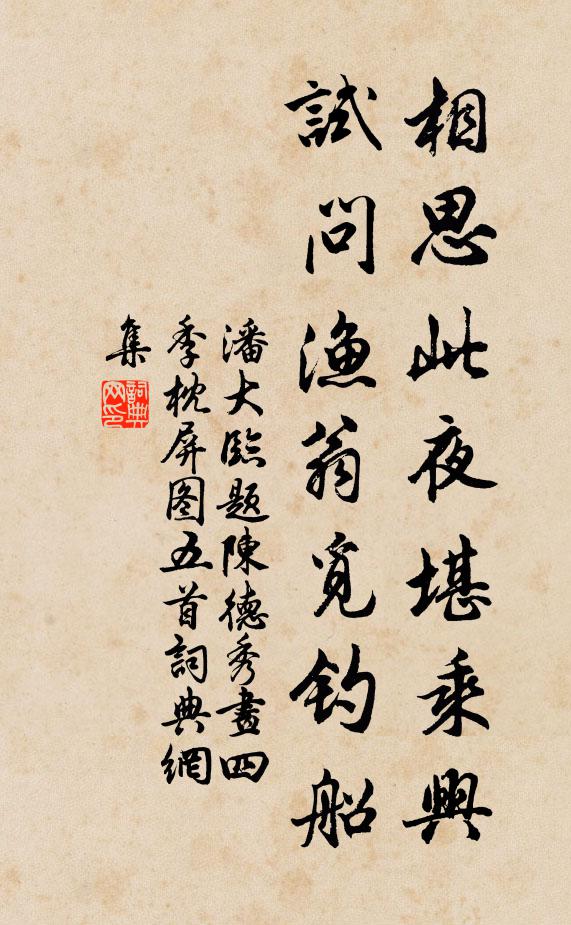 相思此夜堪乘興
試問漁翁覓釣船
潘大臨題陳德秀畫四
季枕屏图五首詞典網
集
詞典网印